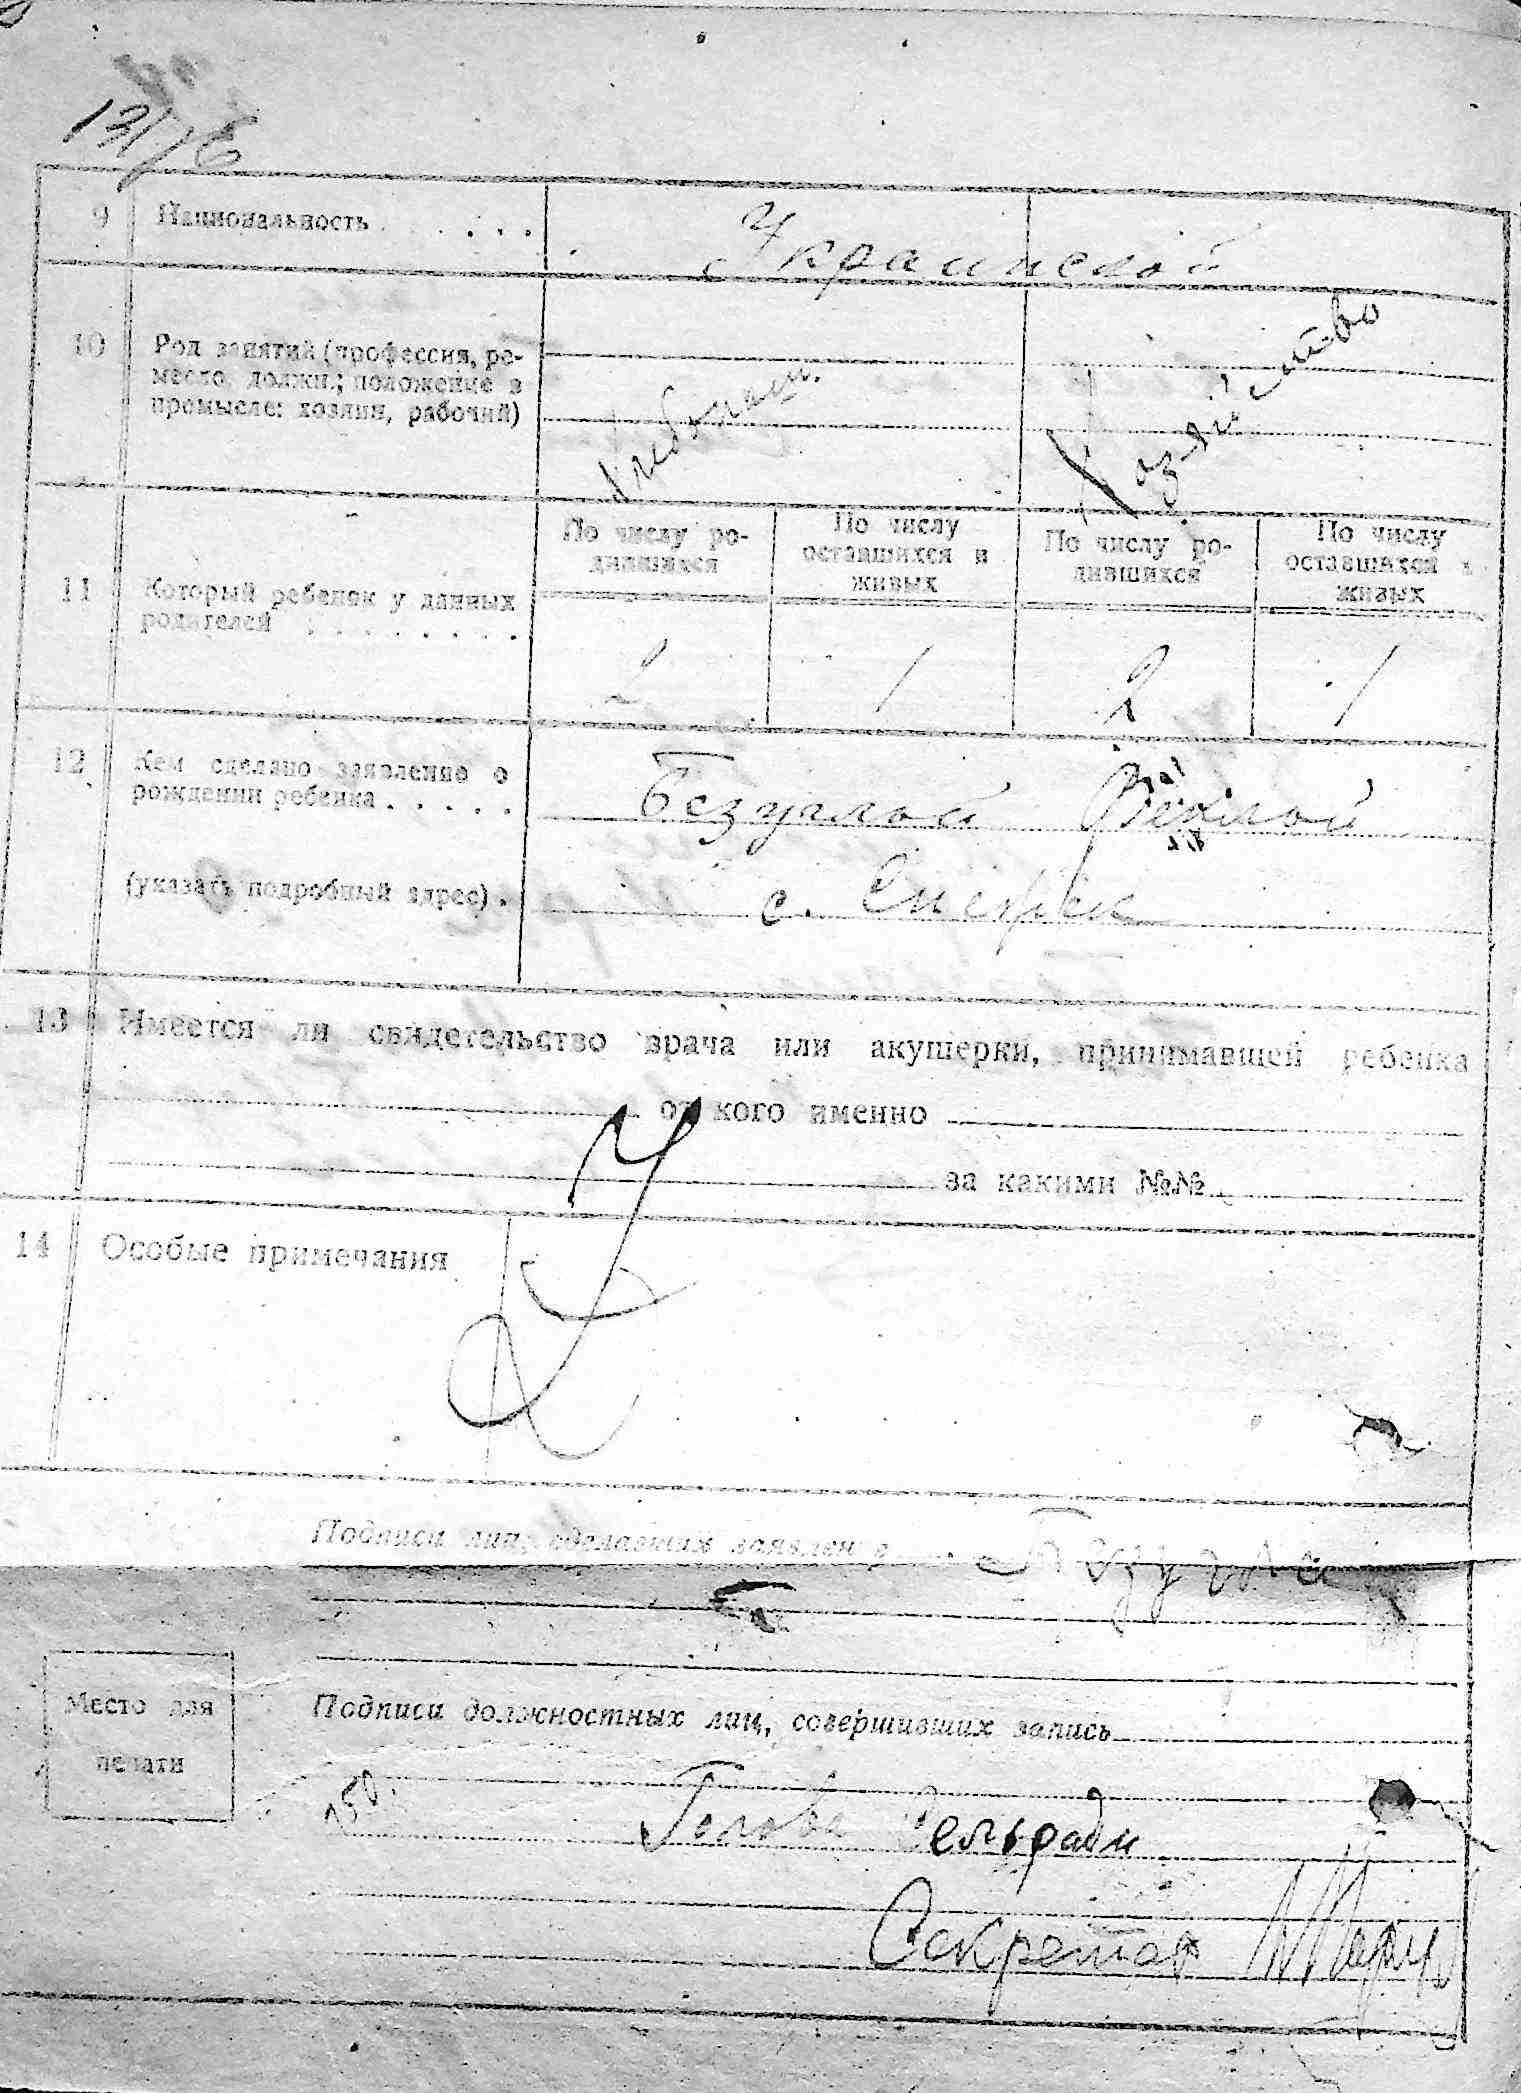 9 Национальность . . . . Украинской
10 Род занятий (профессия, ре-
месло, должн.; положение в
промысле: хозяин, рабочий)
Хлебопаш. Хозяйство
По числу ро-
дившихся
По числу
оставшихся в
живых
По числу ро-
дившихся
По числу
оставшихся в
живых
11 Который ребенок у данных
родителей . . . . . . . .
2 1 2 1
12 Кем сделано заявление о
рождении ребенка . . . . .
Безуглой
(указать подробный адрес) .
с.
13 Имеется ли свидетельство врача или акушерки, принимавшей ребенка
от кого именно
за какими №№
14 Особые примечания
Подписи лиц, сделавших заявление Безугла
Место для
печати
Подписи должностных лиц, совершивших запись
Голова Сельради
Секретар